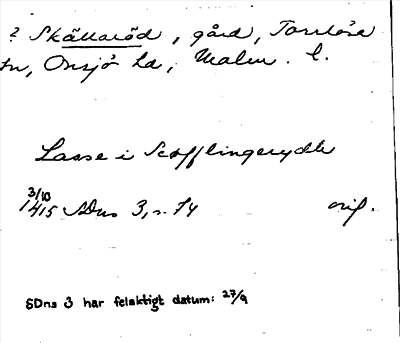 ? Skällaröd, gård, Torrlösa
sn, Onsjö hd, Malm. l.
Lasse i Skefflingerydh
3/10
1415 SDns 3, s. 74 orig.
SDns 3 har felaktigt datum: 27/9